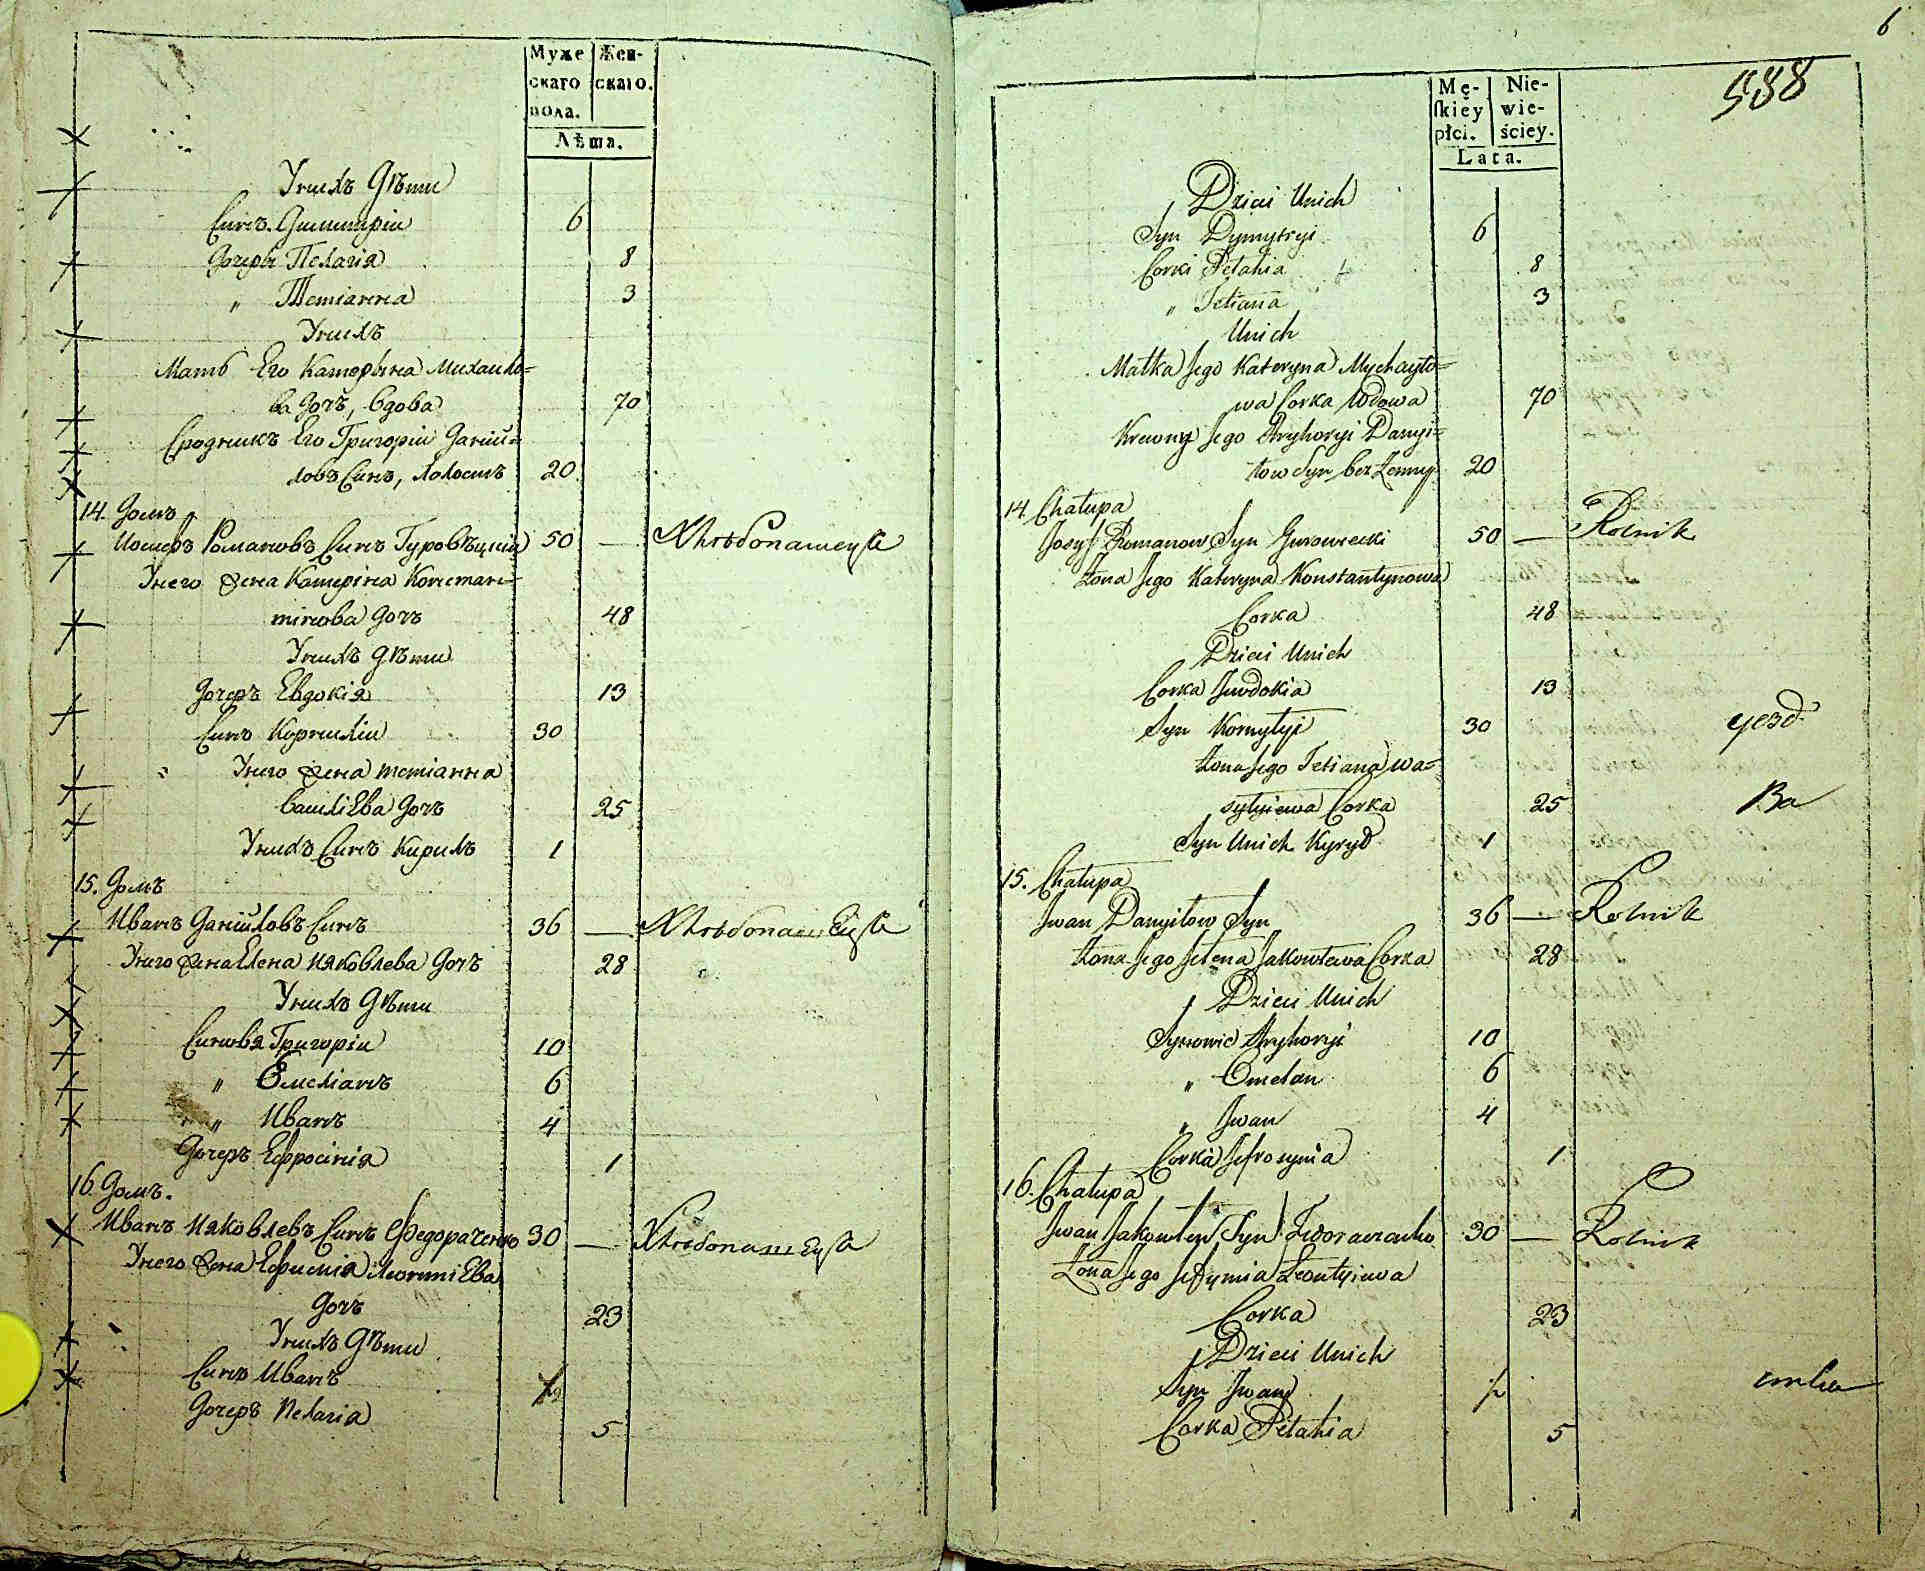 Муже
скаго
пола.
Жен-
скаго.
Лѣта.
У нихъ Дѣти
Сынъ Димитрій 6
Дочери Пелагія 8
„ Тетіанна 3
У нихъ
Мать Его Катерына Михайло-
ва Дочь, вдова 70
Сродникъ Его Григорій Даній-
ловъ Сынъ, Холостъ 20
14. Домъ
Иосифъ Романовъ Сынъ Гуровѣцкій 50 — Хлѣбопашецъ
У него жена Катеріна Констан-
тінова Дочь 48
У нихъ Дѣти
Дочерь Евдокія 13
Сынъ Корнилій 30
У него жена Тетіанна
Василіева Дочь 25
У нихъ Сынъ Кирилъ 1
15. Домъ
Иванъ Даніиловъ Сынъ 36 — Хлѣбопашецъ
У него жена Елена Ияковлева Дочь 28
У нихъ Дѣти
Сыновья Григорій 10
„ Емеліанъ 6
„ Иванъ 4
Дочерь Ефросінія 1
16 Домъ.
Иванъ Ияковлевъ Сынъ Федораченко 30 — Хлѣбопашецъ
У него жена Ефимія Леонтіева
Дочь 23
У нихъ Дѣти
Сынъ Иванъ
Дочерь Пелагія 5
6
588
Mę-
ſkiey
płci.
Nie-
wie-
ściey.
Lata.
Dzieci Unich
Syn Dymytryi 6
Corki Pelahia 8
„ Tetiana 3
Unich
Matka Jego Kateryna Mychayło-
wa Corka Wdowa 70
Krewny Jego Hryhoryi Danyi-
łow Syn bez Żenny 20
14. Chałupa
Josyf Romanow Syn Gurowiecki 50 — Rolnik
Żona Jego Kateryna Konstantynowa
Corka 48
Dzieci Unich
Corka Jewdokia 13
Syn Kornylyi 30 уезд
Żona Jego Tetiana Wa-
sylyiewa Corka 25 Ва
Syn Unich Kyryło 1
15. Chałupa
Jwan Danyiłow Syn 36 — Rolnik
Żona Jego Jelena Jakowlewa Corka 28
Dzieci Unich
Synowie Hryhoryi 10
„ Omelan 6
„ Jwan 4
Corka Jefrosynia 1
16. Chałupa
Jwan Jakowlew Syn Fedoraczenko 30 — Rolnik
Żona Jego Jefymia Leontyiewa
Corka 23
Dzieci Unich
Syn Jwan
Corka Pelahia 5